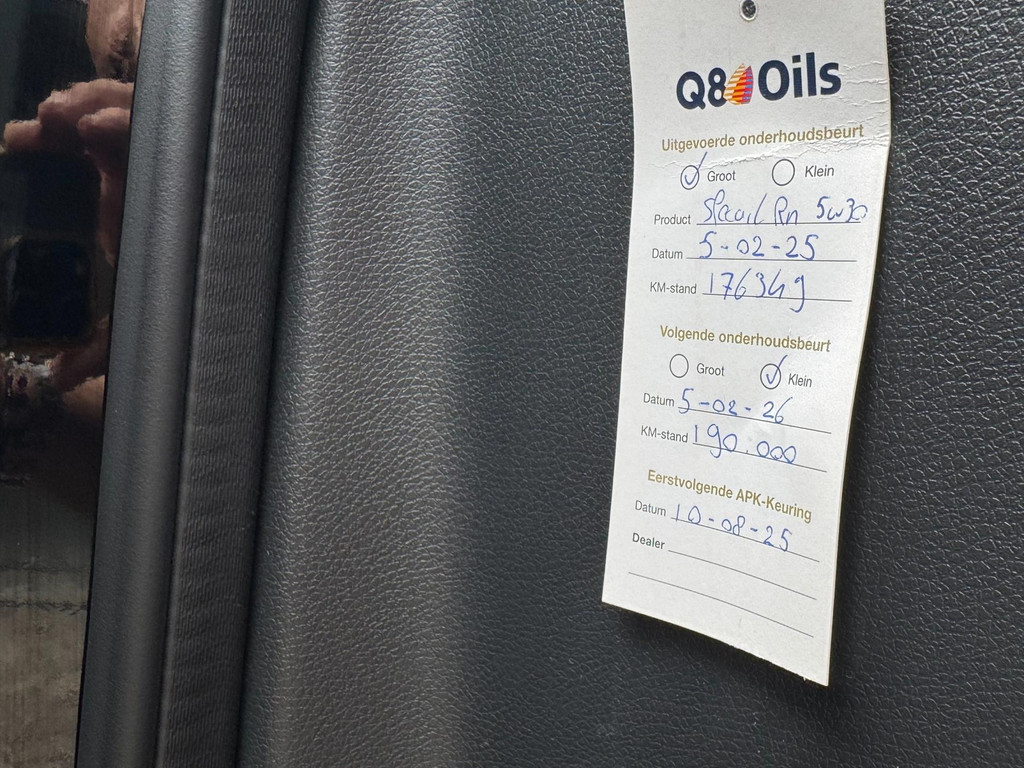 Q8 Oils
Uitgevoerde onderhoudsbeurt
Groot Klein
Product 5w30
Datum 5-02-25
KM-stand 176349
Volgende onderhoudsbeurt
Groot Klein
Datum 5-02-26
KM-stand 190.000
Eerstvolgende APK-Keuring
Datum 10-08-25
Dealer